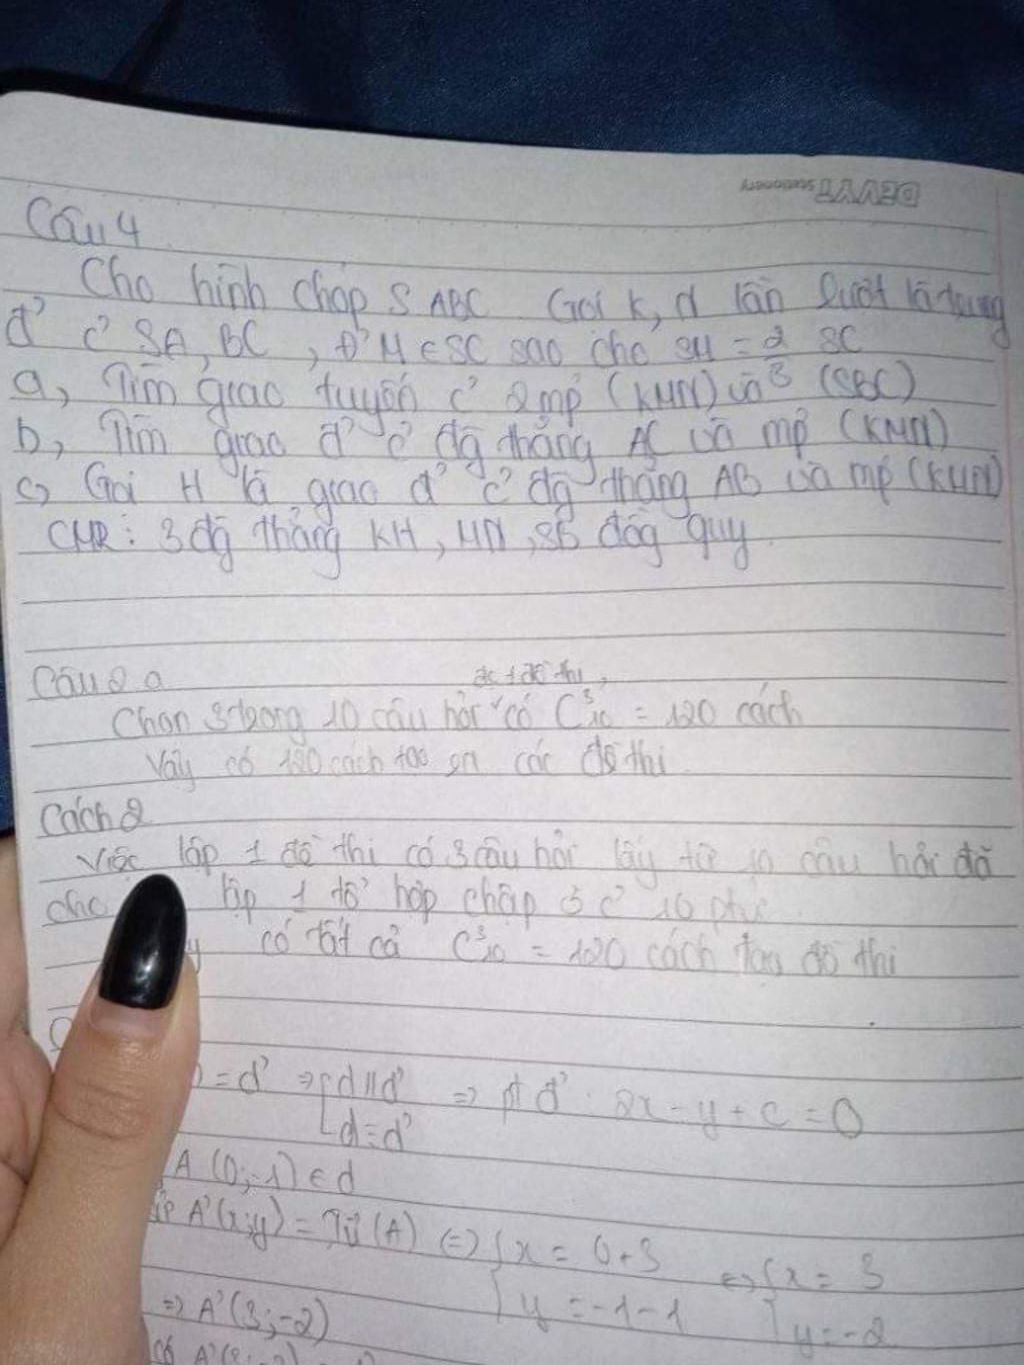 DEVYT Stationery
Câu 4
Cho hình chóp S ABC. Gọi K, N lần lượt là trung
đ' c' SA, BC, Đ' M ∈ SC sao cho SM = 2/3 SC
a, Tìm giao tuyến c' 2 mp (KMN) và (SBC)
b, Tìm giao đ' c' đg thẳng AC và mp (KMN)
c, Gọi H là giao đ' c' đg thẳng AB và mp (KMN)
CMR: 3 đg thẳng KH, MN, SB đồg quy.
Câu 2 a
đc 1 đề thi,
Chọn 3 trong 10 câu hỏi có C³₁₀ = 120 cách
Vậy có 120 cách tạo ra các đề thi
Cách 2
Việc lập 1 đề thi có 3 câu hỏi lấy từ 10 câu hỏi đã
cho lập 1 tổ hợp chập 3 c' 10 ptử.
có tất cả C³₁₀ = 120 cách tạo đề thi
) = d' => [d // d' => pt d': 2x - y + c = 0
d ≡ d'
A (0; -1) ∈ d
A'(x;y) = (A) <=> { x = 0 + 3 <=> { x = 3
y = -1 - 1 y = -2
=> A'(3; -2)